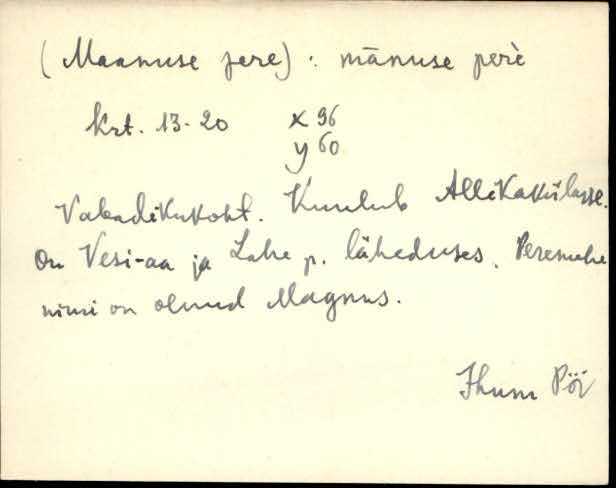 (Maanuse pere) : mānuse perè
krt. 13-20 x 96
y 60
Vabadikukoht. Kuulub Allikakülasse.
On Vesi-aa ja Lahe p. läheduses. Peremehe
nimi on olnud Magnus.
Pöi